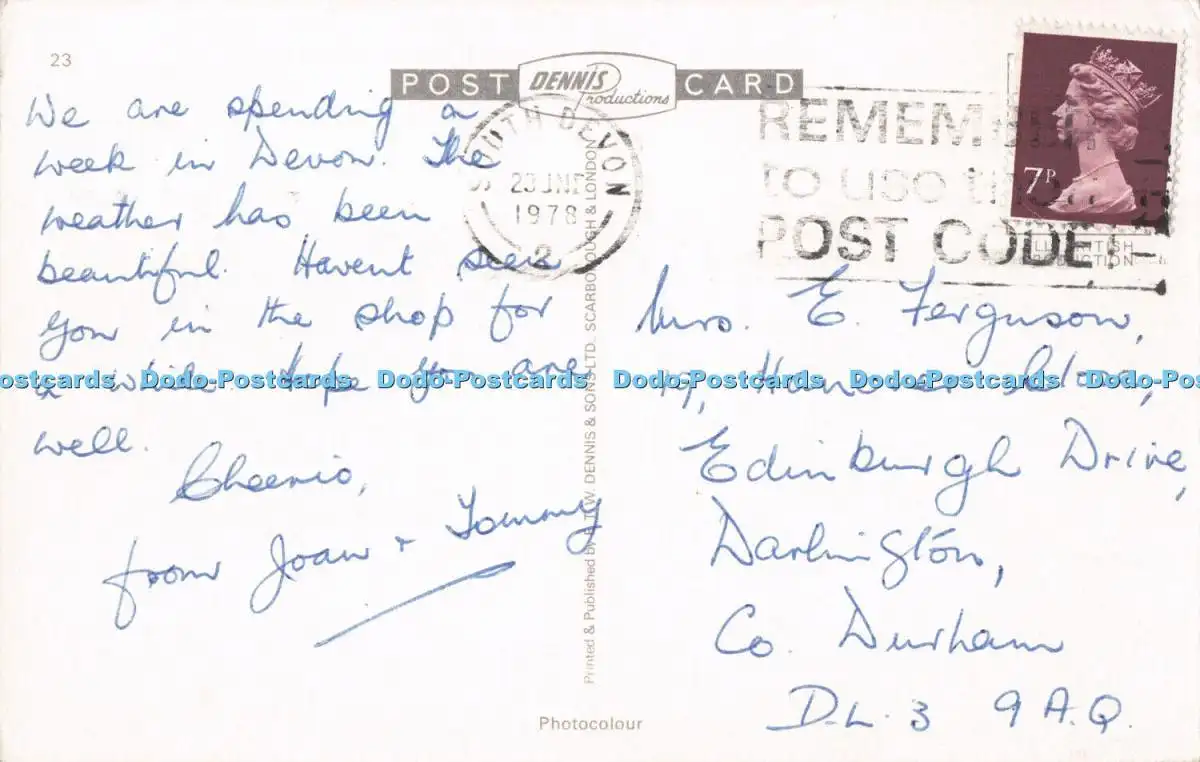 23
POST DENNIS Productions CARD
We are spending a
week in Devon. The
weather has been
beautiful. Havent seen
you in the shop for
a while hope you are
well.
Cheerio,
from Joan + Tommy
DEVON
1978
REMEMBER
to use the
POST CODE
7P
Mrs. E. Ferguson,
19,
Edinburgh Drive,
Darlington,
Co. Durham
D.L. 3 9 A.Q.
Printed & Published by E.T.W. DENNIS & SONS LTD. SCARBOROUGH & LONDON
Photocolour
Dodo-Postcards Dodo-Postcards Dodo-Postcards Dodo-Postcards